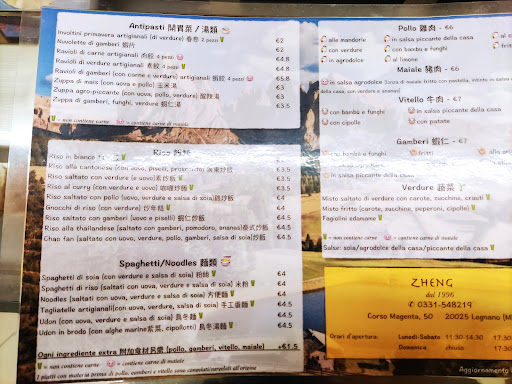 Antipasti 開胃菜 / 湯類
Involtini primavera artigianali (di verdure) 春卷 2 pezzi €2
Nuvolette di gamberi 蝦片 €2
Ravioli di carne artigianali 肉餃 4 pezzi €4.8
Ravioli di verdure artigianali 素餃 4 pezzi €4
Ravioli di gamberi (con carne e verdure) artigianali 蝦餃 4 pezzi €5.8
Zuppa di mais (con uova e pollo) 玉米湯 €3
Zuppa agro-piccante (con uova, pollo, verdure) 酸辣湯 €3
Zuppa di gamberi, funghi, verdure 蝦仁湯 €3.5
= non contiene carne = contiene carne di maiale
Riso 飯類
Riso in bianco
Riso alla cantonese (con uova, piselli, prosciutto) 廣東炒飯 €3.5
Riso saltato con verdure (e uovo) 素炒飯 €3.5
Riso al curry (con verdure e uovo) 咖喱炒飯 €3.5
Riso saltato con pollo (uova, verdure e salsa di soia)
Gnocchi di riso (con verdure) 炒年糕
Riso saltato con gamberi (uova e piselli) 蝦仁炒飯 €4.5
Riso alla thailandese (saltato con gamberi, pomodoro, ananas) 泰式炒飯 €4.5
Chap fan (saltato con uova, verdure, pollo, gamberi, salsa di soia) €4.5
Spaghetti/Noodles 麵類
Spaghetti di soia (con verdure e salsa di soia) 粉絲 €4
Spaghetti di riso (con verdure e salsa di soia) 米粉 €4
Noodles (saltati con uova, verdure e salsa di soia) 方便麵 €4
Tagliatelle artigianali (con uova, verdure, salsa di soia) 手工蛋麵 €4.5
Udon (con uova, verdure e salsa di soia) 烏冬麵 €4.5
Udon in brodo (con alghe marine 紫菜, cipollotti) 烏冬湯麵 €4.5
Ogni ingrediente extra 附加食材另需 (pollo, gamberi, vitello, maiale) +€1.5
= non contiene carne = contiene carne di maiale
I piatti con materia prima di pollo, gamberi e vitello sono congelati/surgelati all'origine
Pollo 雞肉 - €6
alle mandorle in salsa piccante della casa
con verdure con bambù e funghi
in agrodolce al limone
Maiale 豬肉 -
in salsa agrodolce (lonza di maiale fritto con pastella, intinto in salsa
e verdure e ananas)
Vitello 牛肉 - €7
con bambù e funghi in salsa piccante della casa
con cipolle con patate
Gamberi 蝦仁 - €7
con bambù e funghi fritti
in salsa piccante della casa
Verdure 蔬菜
Misto saltato di verdure con carote, zucchine, crauti
Misto fritto (carote, zucchine, peperoni, cipolle)
Fagiolini edamame
= non contiene carne = contiene carne di maiale
Salse: soia/agrodolce della casa/piccante della casa
ZHENG
dal 1996
0331-548219
Corso Magenta, 50 20025 Legnano (M
Orari d'apertura: Lunedì-Sabato 11:30-14:30 17:30
Domenica chiusa
Aggiornamento